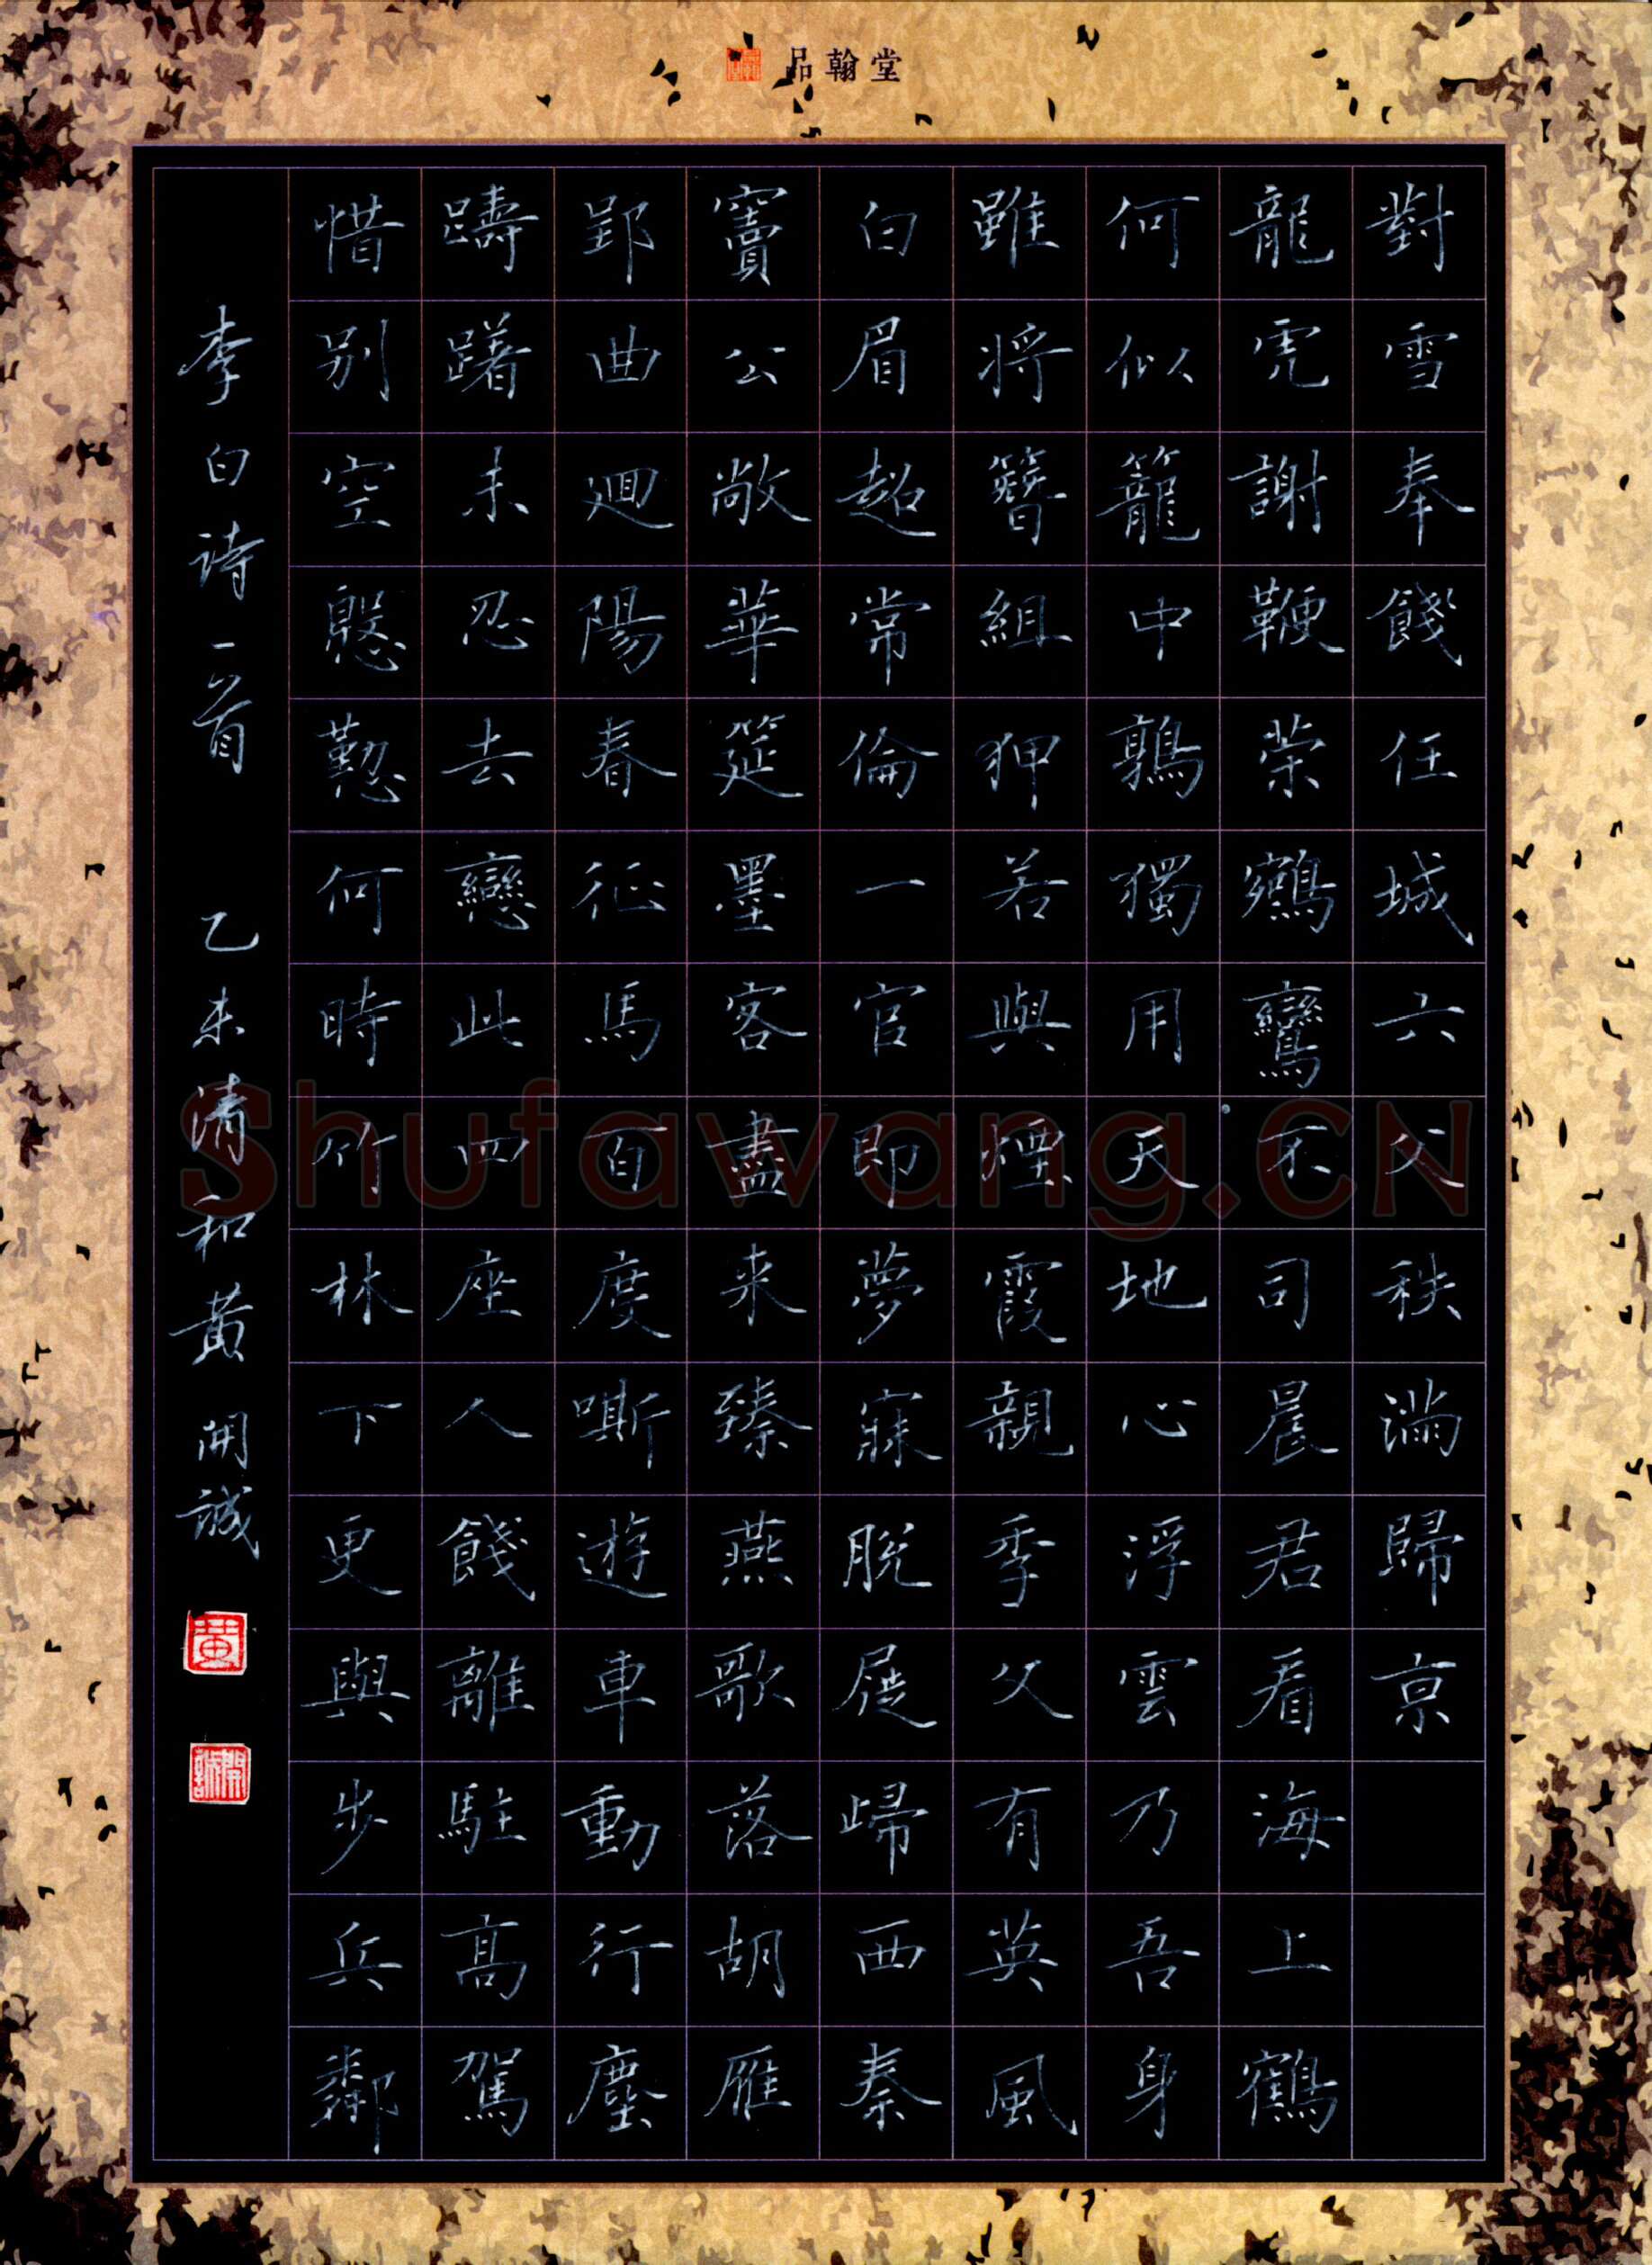 品翰堂
對雪奉餞任城六父秩滿歸京
龍虎謝鞭策鵷鸞不司晨君看海上鶴
何似籠中鶉獨用天地心浮雲乃吾身
雖將簪組狎若與煙霞親季父有英風
白眉超常倫一官即夢寐脫屣㱕西秦
竇公敞華筵墨客盡来臻燕歌落胡雁
郢曲迴陽春征馬百度嘶遊車動行塵
躊躇未忍去戀此四座人餞離駐高駕
惜别空慇懃何時竹林下更與步兵鄰
李白诗一首 乙未清和黄開誠
黄
開誠
Shufawang.CN